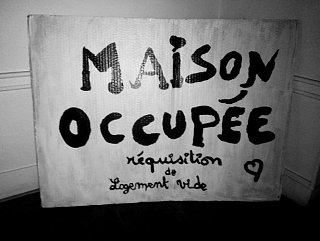 MAISON
OCCUPÉE
réquisition
de
Logement vide